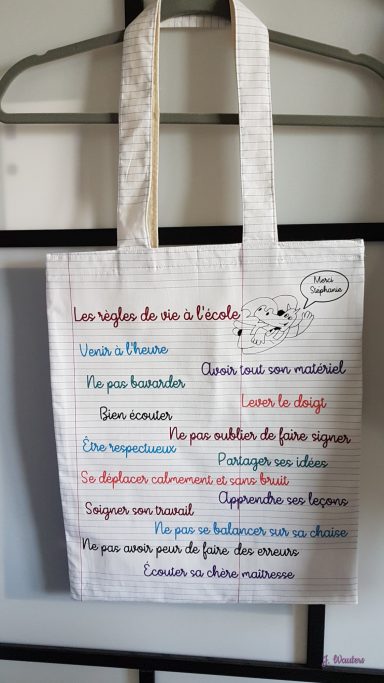 Merci
Stephanie
Les règles de vie à l'école
Venir à l'heure
Avoir tout son matériel
Ne pas bavarder
Lever le doigt
Bien écouter
Ne pas oublier de faire signer
Être respectueux
Partager ses idées
Se déplacer calmement et sans bruit
Apprendre ses leçons
Soigner son travail
Ne pas se balancer sur sa chaise
Ne pas avoir peur de faire des erreurs
Écouter sa chère maîtresse
J. Wauters